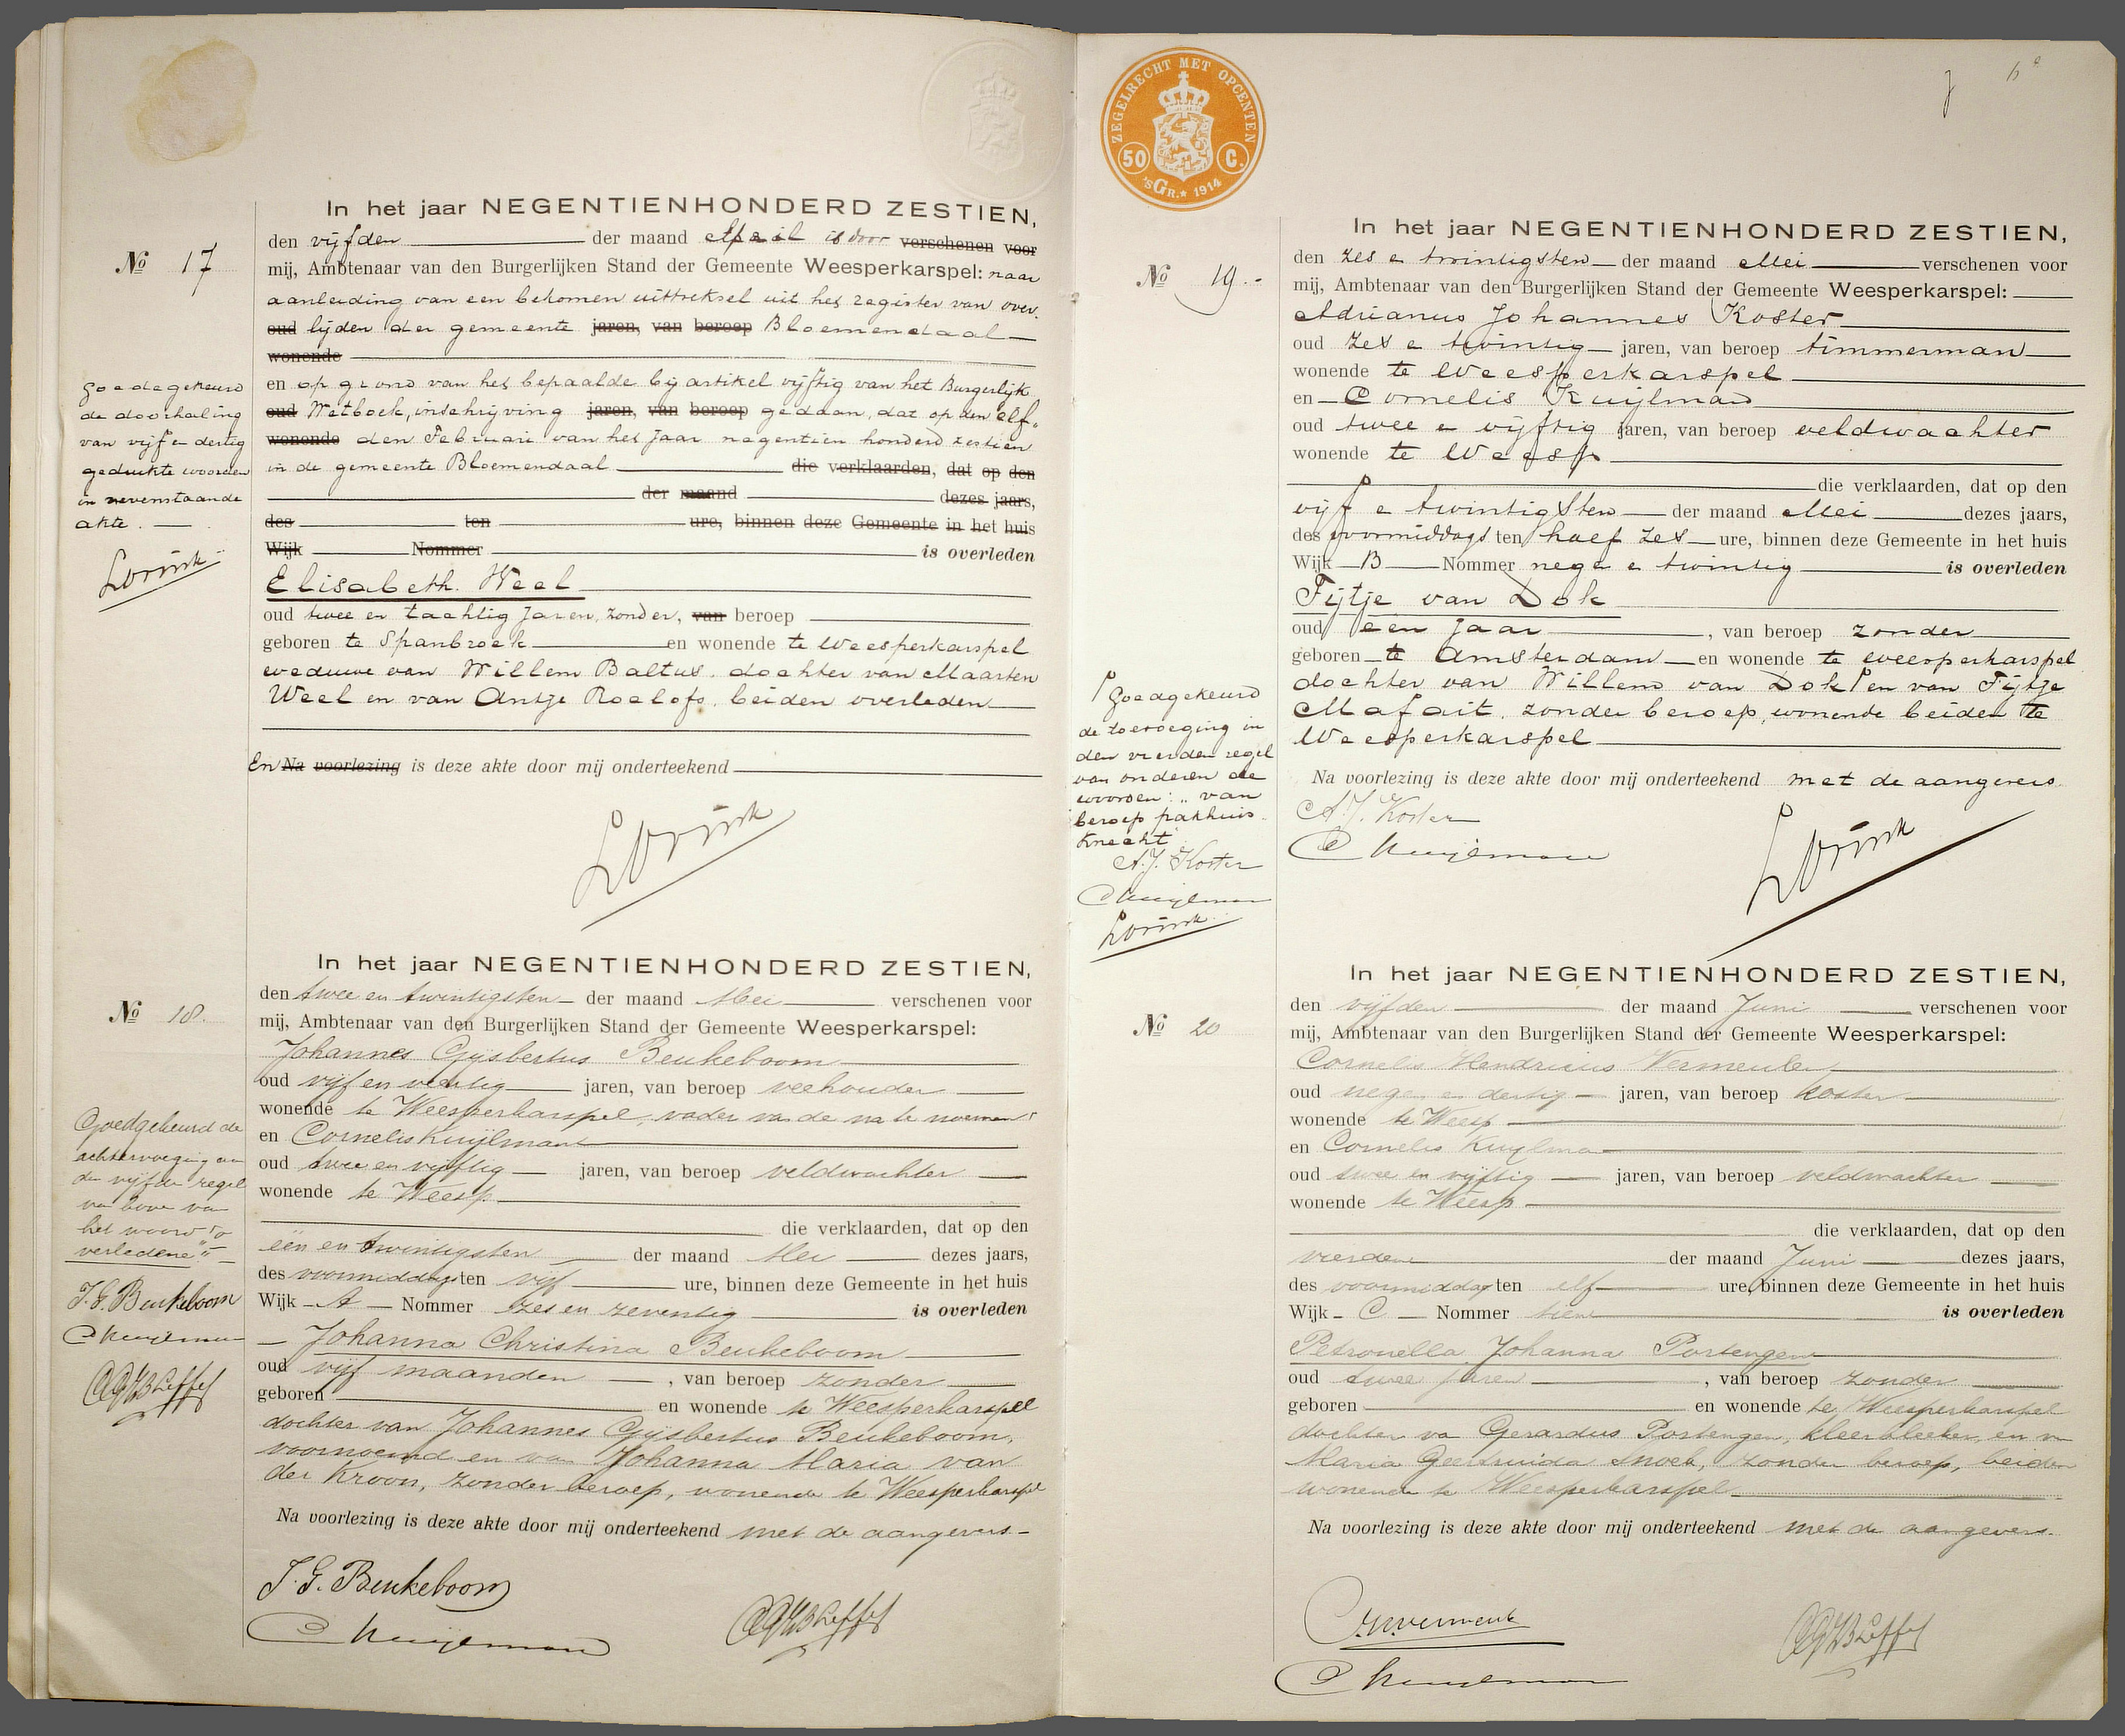 In het jaar NEGENTIENHONDERD ZESTIEN,
No 17
den vijfden der maand April is door verschenen voor
mij, Ambtenaar van den Burgerlijken Stand der Gemeente Weesperkarspel: naar
aanleiding van een bekomen uittreksel uit het register van over.
oud lijden der gemeente jaren, van beroep Bloemendaal
wonende
en op grond van het bepaalde bij artikel vijftig van het Burgerlijk
oud Wetboek, inschrijving jaren, van beroep gedaan, dat op den elf.
wonende den Februari van het jaar negentien honderd zestien
in de gemeente Bloemendaal die verklaarden, dat op den
der maand dezes jaars,
des ten ure, binnen deze Gemeente in het huis
Wijk Nommer is overleden
Elisabeth Weel
oud twee en tachtig jaren, zonder, van beroep
geboren te Spanbroek en wonende te Weesperkarspel
weduwe van Willem Baltus, dochter van Maarten
Weel en van Antje Roelofs, beiden overleden
En Na voorlezing is deze akte door mij onderteekend
Lorink
Goedgekeurd
de doorhaling
van vijf en dertig
gedrukte woorden
in nevenstaande
akte.
Lorink
In het jaar NEGENTIENHONDERD ZESTIEN,
No 18.
den twee en twintigsten der maand Mei verschenen voor
mij, Ambtenaar van den Burgerlijken Stand der Gemeente Weesperkarspel:
Johannes Gijsbertus Beukeboom
oud vijf en veertig jaren, van beroep veehouder
wonende te Weesperkarspel, vader van de na te noemen
en Cornelis Kuijlman
oud twee en vijftig jaren, van beroep veldwachter
wonende te Weesp
die verklaarden, dat op den
één en twintigsten der maand Mei dezes jaars,
des voormiddags ten vijf ure, binnen deze Gemeente in het huis
Wijk A Nommer zes en zeventig is overleden
Johanna Christina Beukeboom
oud vijf maanden, van beroep zonder
geboren en wonende te Weesperkarspel
dochter van Johannes Gijsbertus Beukeboom,
voornoemd en van Johanna Maria van
der Kroon, zonder beroep, wonende te Weesperkarspel
Na voorlezing is deze akte door mij onderteekend met de aangevers.
J. G. Beukeboom
C Kuijlman
Goedgekeurd de
achtervoeging aan
den vijfden regel
van boven van
het woord "o
verledene"
J. G. Beukeboom
C Kuijlman
ZEGELRECHT MET OPCENTEN
50 C.
'sGR. 1914
In het jaar NEGENTIENHONDERD ZESTIEN,
No 19.
den zes en twintigsten der maand Mei verschenen voor
mij, Ambtenaar van den Burgerlijken Stand der Gemeente Weesperkarspel:
Adrianus Johannes Koster
oud zes en twintig jaren, van beroep timmerman
wonende te Weesperkarspel
en Cornelis Kuijlman
oud twee en vijftig jaren, van beroep veldwachter
wonende te Weesp
die verklaarden, dat op den
vijf en twintigsten der maand Mei dezes jaars,
des voormiddags ten half zes ure, binnen deze Gemeente in het huis
Wijk B Nommer negen en twintig is overleden
Fijtje van Dok
oud een jaar, van beroep zonder
geboren te Amsterdam en wonende te Weesperkarspel
dochter van Willem van Dok en van Fijtje
Mafait, zonder beroep, wonende beiden te
Weesperkarspel
Na voorlezing is deze akte door mij onderteekend met de aangevers.
A. J. Koster
C Kuijlman
Lorink
Goedgekeurd
de toevoeging in
den vierden regel
van onderen de
woorden: "van
beroep pakhuis
knecht"
A. J. Koster
C Kuijlman
Lorink
In het jaar NEGENTIENHONDERD ZESTIEN,
No 20
den vijfden der maand Juni verschenen voor
mij, Ambtenaar van den Burgerlijken Stand der Gemeente Weesperkarspel:
Cornelis Hendricus Vermeulen
oud negen en dertig jaren, van beroep koster
wonende te Weesp
en Cornelis Kuijlman
oud twee en vijftig jaren, van beroep veldwachter
wonende te Weesp
die verklaarden, dat op den
vierden der maand Juni dezes jaars,
des voormiddags ten elf ure, binnen deze Gemeente in het huis
Wijk C Nommer tien is overleden
Petronella Johanna Portengen
oud twee jaren, van beroep zonder
geboren en wonende te Weesperkarspel
dochter van Gerardus Portengen, kleerbleeker, en van
Maria Geertruida Snoek, zonder beroep, beiden
wonende te Weesperkarspel
Na voorlezing is deze akte door mij onderteekend met de aangevers.
C Kuijlman